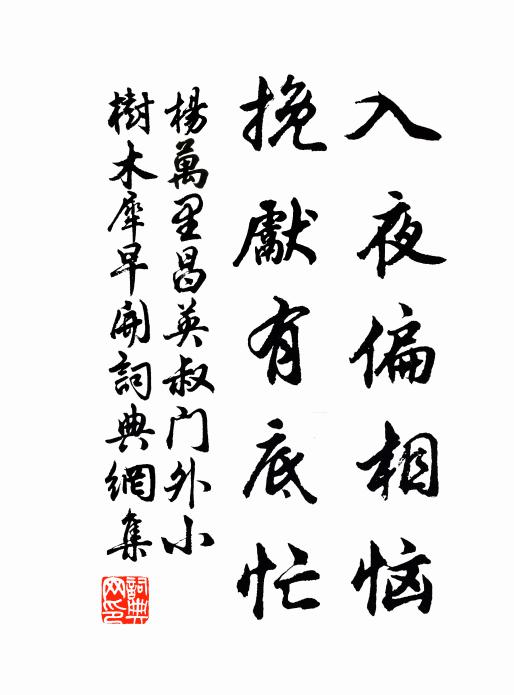 入夜偏相恼
挽獻有底忙
楊萬里昌英叔门外小
樹木犀早開詞典網集
詞典网印